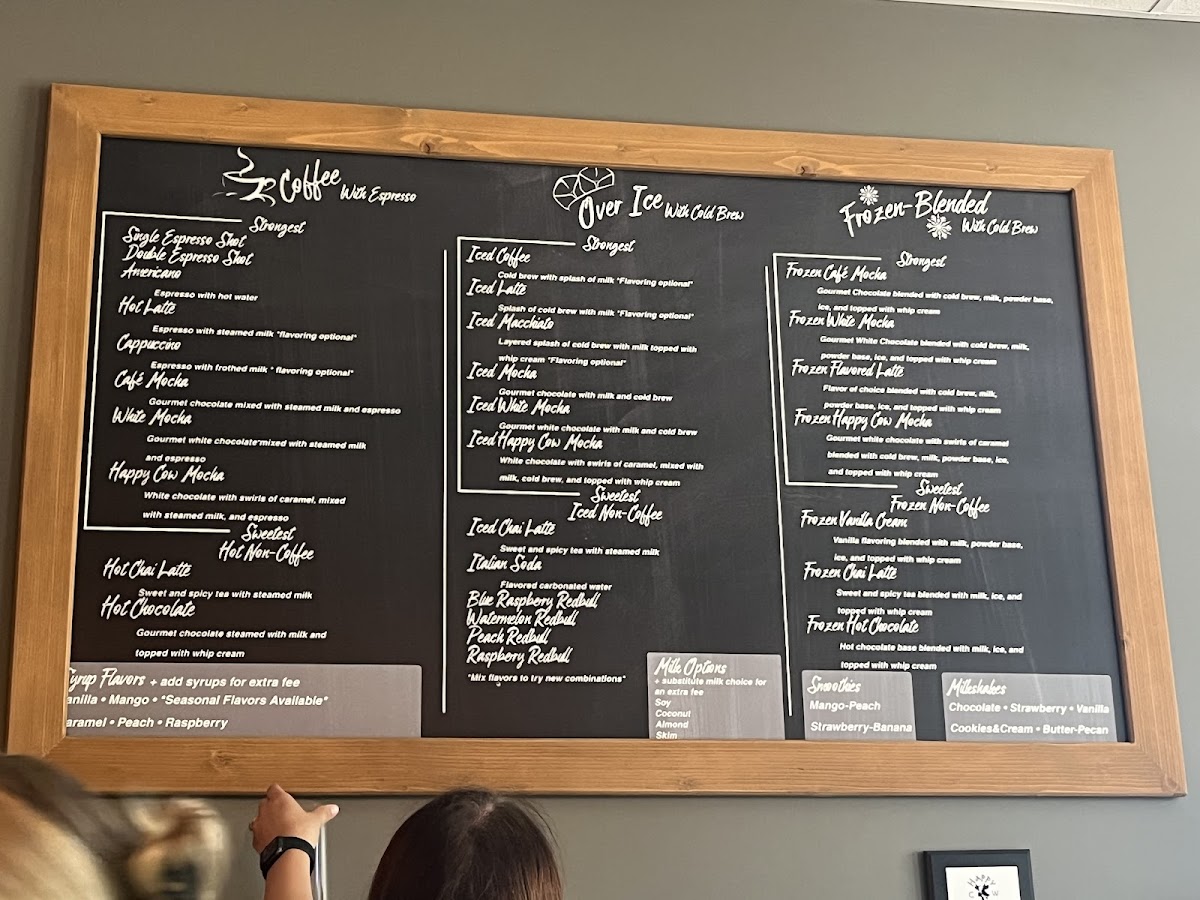 Coffee With Espresso
Strongest
Single Espresso Shot
Double Espresso Shot
Americano
Espresso with hot water
Hot Latte
Espresso with steamed milk *flavoring optional*
Cappuccino
Espresso with frothed milk * flavoring optional*
Café Mocha
Gourmet chocolate mixed with steamed milk and espresso
White Mocha
Gourmet white chocolate mixed with steamed milk
and espresso
Happy Cow Mocha
White chocolate with swirls of caramel, mixed
with steamed milk, and espresso
Sweetest
Hot Non-Coffee
Hot Chai Latte
Sweet and spicy tea with steamed milk
Hot Chocolate
Gourmet chocolate steamed with milk and
topped with whip cream
Syrup Flavors + add syrups for extra fee
anilla • Mango • *Seasonal Flavors Available*
aramel • Peach • Raspberry
Over Ice With Cold Brew
Strongest
Iced Coffee
Cold brew with splash of milk *Flavoring optional*
Iced Latte
Splash of cold brew with milk *Flavoring optional*
Iced Macchiato
Layered splash of cold brew with milk topped with
whip cream *Flavoring optional*
Iced Mocha
Gourmet chocolate with milk and cold brew
Iced White Mocha
Gourmet white chocolate with milk and cold brew
Iced Happy Cow Mocha
White chocolate with swirls of caramel, mixed with
milk, cold brew, and topped with whip cream
Sweetest
Iced Non-Coffee
Iced Chai Latte
Sweet and spicy tea with steamed milk
Italian Soda
Flavored carbonated water
Blue Raspberry Redbull
Watermelon Redbull
Peach Redbull
Raspberry Redbull
*Mix flavors to try new combinations*
Milk Options
+ substitute milk choice for
an extra fee
Soy
Coconut
Almond
Skim
Frozen-Blended With Cold Brew
Strongest
Frozen Café Mocha
Gourmet Chocolate blended with cold brew, milk, powder base,
ice, and topped with whip cream
Frozen White Mocha
Gourmet White Chocolate blended with cold brew, milk,
powder base, ice, and topped with whip cream
Frozen Flavored Latte
Flavor of choice blended with cold brew, milk,
powder base, ice, and topped with whip cream
Frozen Happy Cow Mocha
Gourmet white chocolate with swirls of caramel
blended with cold brew, milk, powder base, ice,
and topped with whip cream
Sweetest
Frozen Non-Coffee
Frozen Vanilla Cream
Vanilla flavoring blended with milk, powder base,
ice, and topped with whip cream
Frozen Chai Latte
Sweet and spicy tea blended with milk, ice, and
topped with whip cream
Frozen Hot Chocolate
Hot chocolate base blended with milk, ice, and
topped with whip cream
Smoothies
Mango-Peach
Strawberry-Banana
Milkshakes
Chocolate • Strawberry • Vanilla
Cookies&Cream • Butter-Pecan
HAPPY
C W